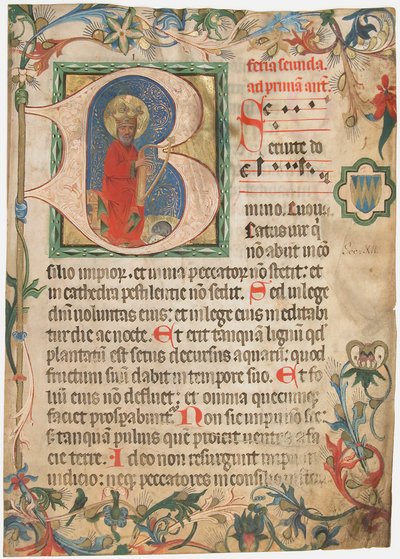 feria secunda.
ad primā ant.
Seruite do
mino. Euoua
B Eatus uir q
nō abiit in cō
silio impior. et in uia peccator nō stetit: et
in cathedra pestilentie nō sedit. Sed in lege
dnī voluntas eius: et in lege eius meditabi
tur die ac nocte. Et erit tanquā lignū qd
plantatū est secus decursus aquarū: quod
fructum suū dabit in tempore suo. Et fo
liū eius nō defluet: et omnia quecumq;
faciet prosperabunt. Non sic impii nō sic:
s; tanquā puluis quē proicit uentus a fa
cie terre. Ideo non resurgunt impii in
iudicio: neq; peccatores in consilio